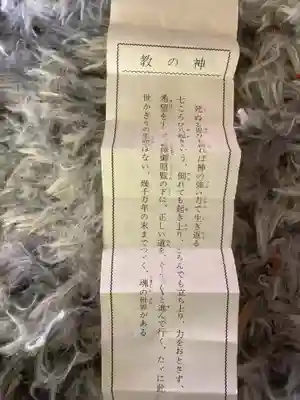 神の教
死ぬも思れば神の強い力で生き返る
七ころび八起といふ、倒れても起き上り、ころんでも立ち上り、力をおとさず、
希望を 神御照覧の下に、正しい道を、 と進んで行く、たゞに此
世かぎりの はない、幾千万年の末までつゞく、魂の世界がある